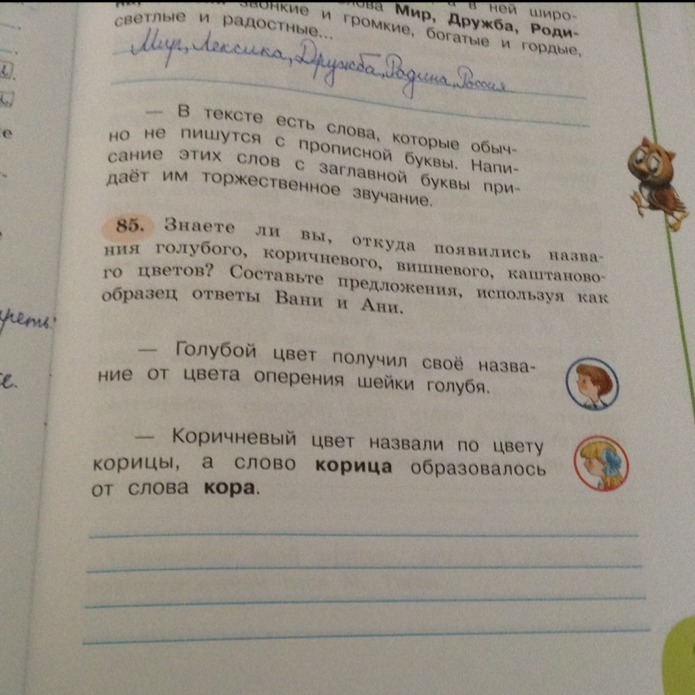 звонкие и громкие, богатые и гордые,
Мир, Дружба, Роди-
светлые и радостные...
Мир, Лексика, Дружба, Родина, Россия
— В тексте есть слова, которые обыч-
но не пишутся с прописной буквы. Напи-
сание этих слов с заглавной буквы при-
даёт им торжественное звучание.
85. Знаете ли вы, откуда появились назва-
ния голубого, коричневого, вишневого, каштаново-
го цветов? Составьте предложения, используя как
образец ответы Вани и Ани.
— Голубой цвет получил своё назва-
ние от цвета оперения шейки голубя.
— Коричневый цвет назвали по цвету
корицы, а слово корица образовалось
от слова кора.